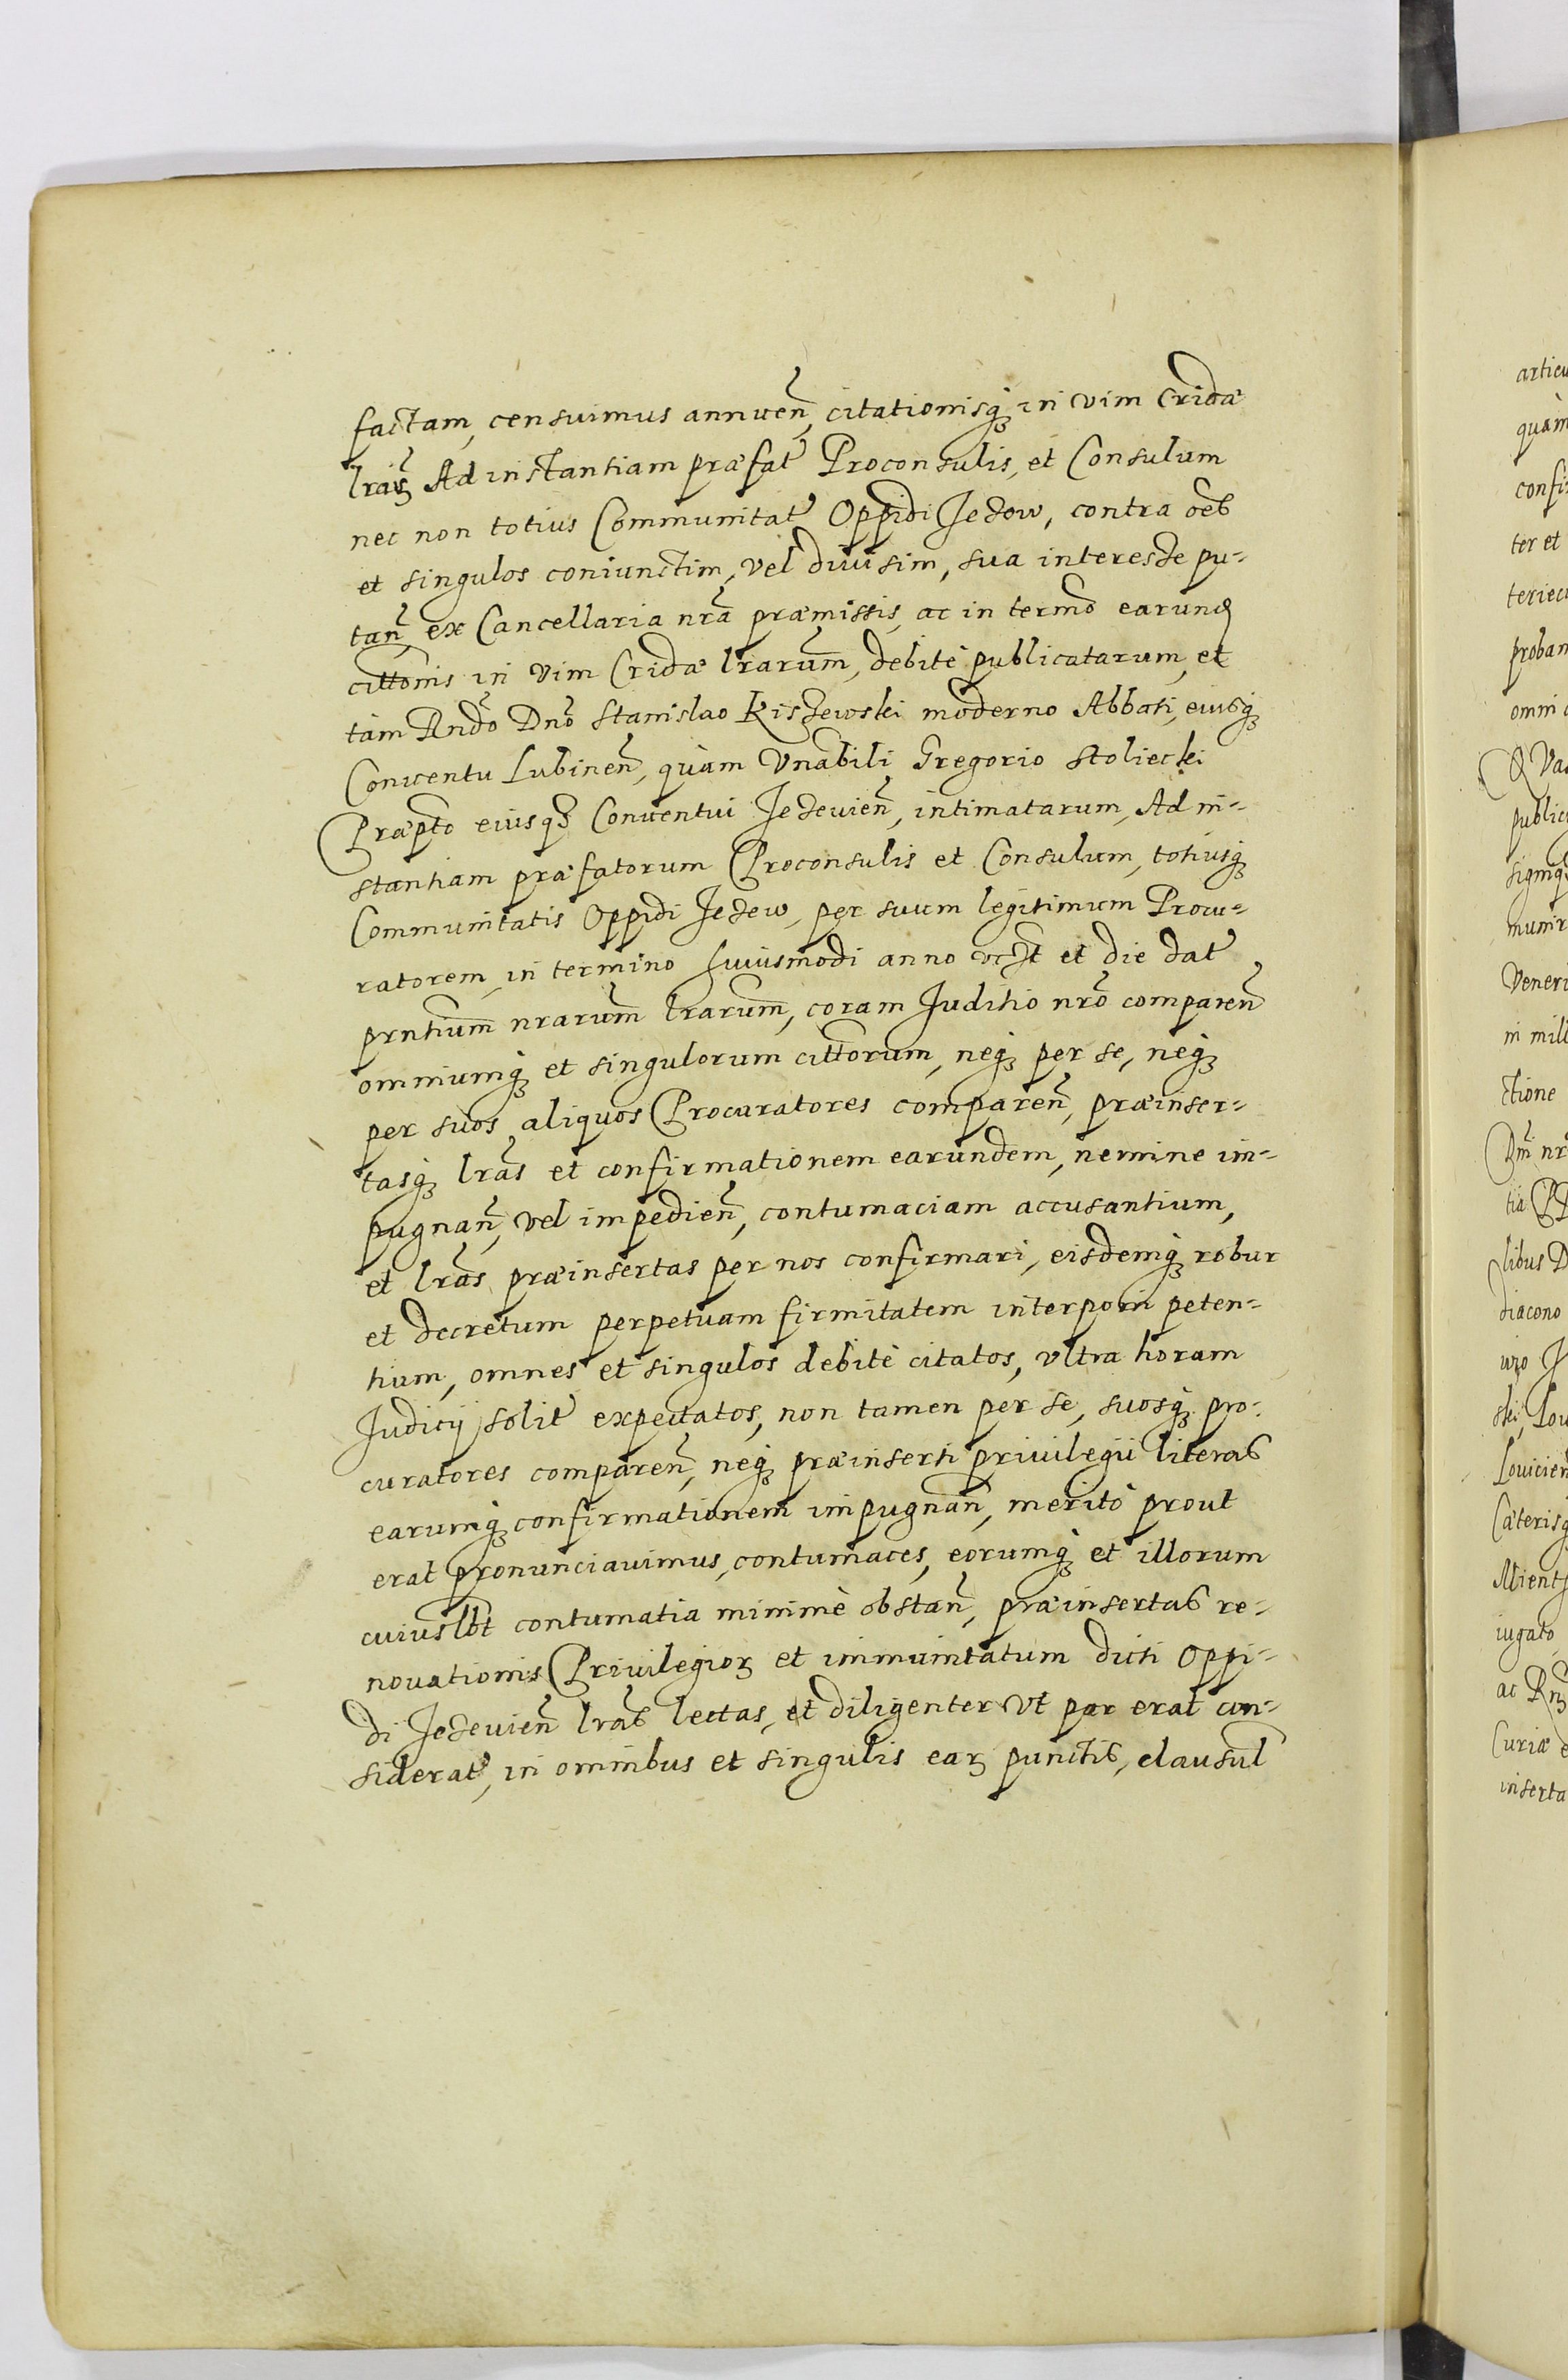 factam, censuimus annuen̄, citationisq̃ in vim Cridæ
lrãs Ad instantiam præfat̃ Proconsulis, et Consulum
nec non totius Communitat̃ Oppidi Jeżow, contra oẽs
et singulos coniunctim, vel diuisim, sua interesse pu-
tan̄, ex Cancellaria nr̃a præmissis, ac in termõ earund
cittonis in vim Cridæ lrarum̃, debitè publicatarum, et
tàm Rndõ Dnõ Stanislao Kiszewski moderno Abbati, eiusq̃
Conuentu Lubinen̄, quàm Vnabili Gregorio Stoliecki
Præpto eiusq̃ Conuentui Jeżeuien̄, intimatarum, Ad in-
stantiam præfatorum Proconsulis et Consulum, totiusq̃
Communitatis Oppidi Jeżew, per suum legitimum Procu-
ratorem, in termino huiusmodi anno et die dat̃
prntium̃ nrarum̃ lrarum̃, coram Juditio nrõ comparen̄
omniumq̃ et singulorum cittorum, neq̃ per se, neq̃
per suos aliquos Procuratores comparen̄, præinser-
tasq̃ lrãs et confirmationem earundem, nemine im-
pugnan̄, vel impedien̄, contumaciam accusantium,
et lrãs præinsertas per nos confirmari, eisdemq̃ robur
et decretum perpetuam firmitatem interponi peten-
tium, omnes et singulos debitè citatos, vltra horam
Judicij solit̃ expectatos, non tamen per se, suosq̃ pro-
curatores comparen̄, neq̃ præinserti priuilegii literas
earumq̃ confirmationem impugnan̄, meritò prout
erat pronunciauimus, contumaces, eorumq̃ et illorum
cuiuslb̃t contumatia minimè obstan̄, præinsertas re-
nouationis Priuilegioꝝ et immunitatum dicti Oppi-
di Jeżeuien̄ lrãs lectas, et diligenter vt par erat con-
siderat̃, in omnibus et singulis eaꝝ punctis, clausul̃